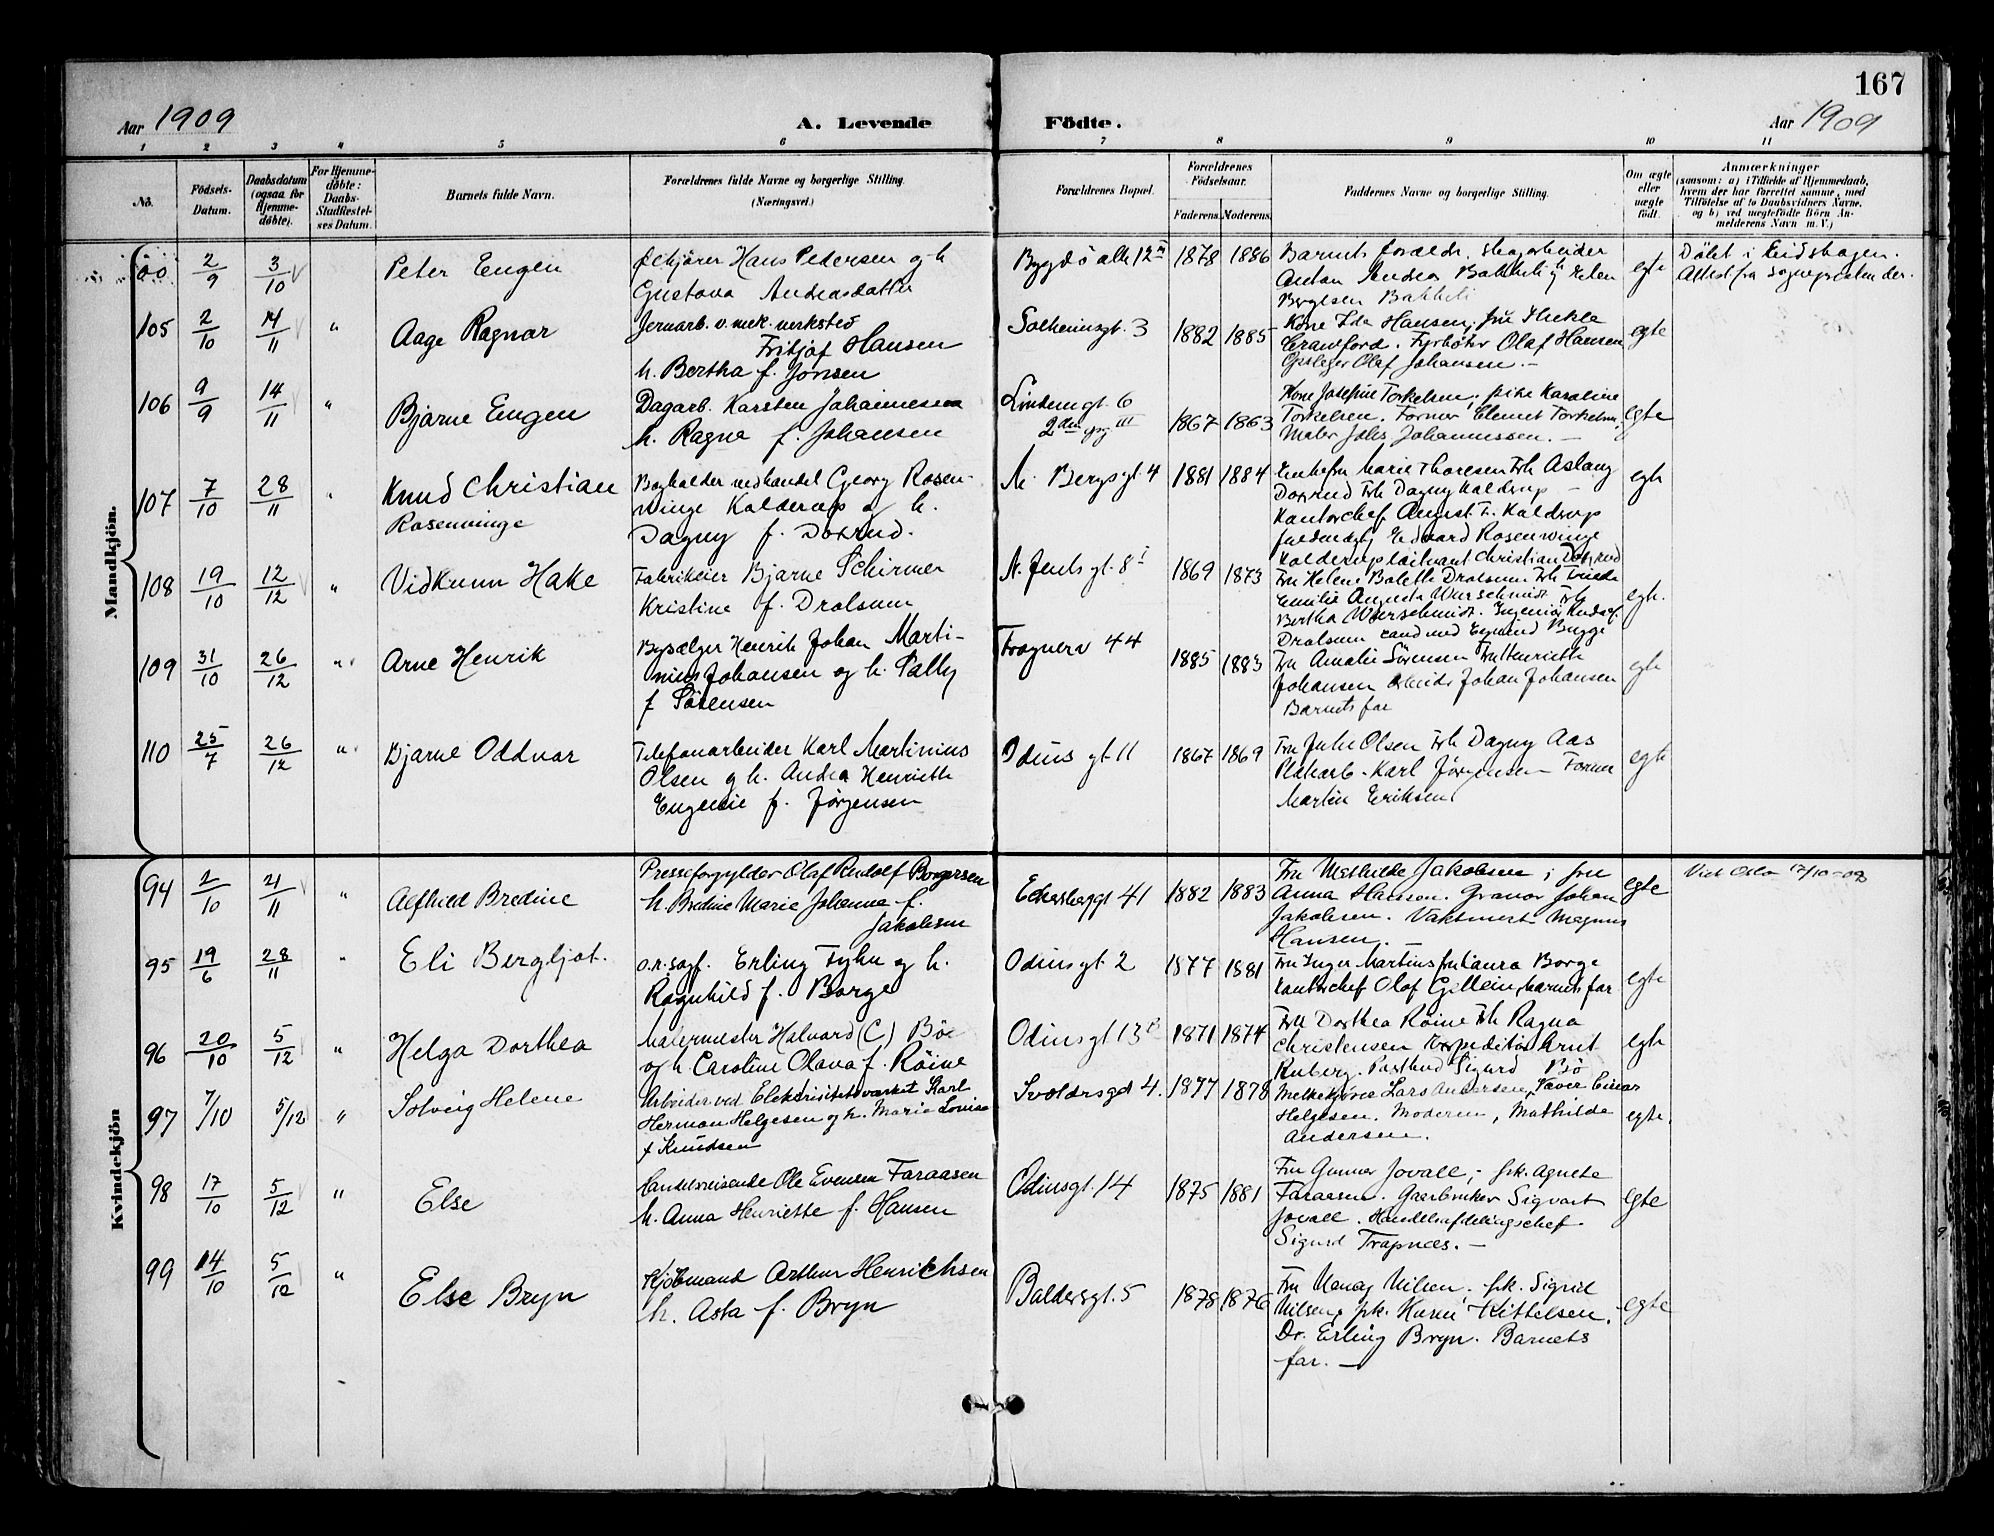 167
Aar 1909
A. Levende
Födte.
Aar 1909
1 2 3 4 5 6 7 8 9 10 11
No.
Födsels-
Datum.
Daabsdatum
(ogsaa for
Hjemme-
døbte).
For Hjemme-
døbte:
Daabs-
Stadfæstel-
ses Datum.
Barnets fulde Navn.
Forældrenes fulde Navne og borgerlige Stilling.
(Næringsvei.)
Forældrenes Bopæl.
Forældrenes
Födselsaar.
Faderens. Moderens.
Faddernes Navne og borgerlige Stilling.
Om ægte
eller
uægte
födt.
Anmærkninger
(saasom: a) i Tilfælde af Hjemmedaab,
hvem der har forrettet samme, med
Tilföielse af to Daabsvidners Navne,
og b) ved uægtefödte Börn An-
melderens Navn m. V.)
Mandkjön.
2/9 3/10 Peter Eugen
Hans Pedersen og h
Gustava Andreasdatter
Bygdö alle 12 1878 1886
Anton Andrea Bakkeli
Bergesen Bakkeli
egte
Døbt i Eidskogen.
Attest fra sognepresten der.
105 2/10 14/11 " Aage Ragnar
Jernarb. v. mek. verksted
Fritjof Hansen
h. Bertha f. Jonsen
Solheimsgt. 3 1882 1885
Kone Ida Hansen, fru Thekla
Crawford. Fyrbøter Olaf Hansen
Opsleger Olaf Johansen. —
egte
106 9/9 14/11 " Bjarne Eugen
Dagarb. Karsten Johannesen
h. Ragna f. Johansen
Lindemgt. 6
1867 1863
Kone Josefine Torkelsen, pike Karoline
Torkelsen. Former Clemet Torkelsen,
Maler Johs Johannessen. —
egte
107 7/10 28/11 " Knud Christian
Rosenvinge
Bogholder ved handel Georg Rosen-
vinge Kolderup og h.
Dagny f. Doxrud.
N. Bergs gt 4 1881 1884
Enkefru Marie Thoresen Frk Aslaug
Doxrud Frk Dagny Kolderup
Kontorchef August F. Kolderup
Edvard Rosenvinge
Kolderup loitnant Christian Doxrud
egte
108 19/10 12/12 " Vidkunn Hake
Fabrikeier Bjarne Schirmer
Kristine f. Drolsum
N. Juels gt. 8 I 1869 1873
Fru Helene Bolette Drolsum. Frk Frieda
Emilie Augusta Wurschmidt Frk
Bertha Wurschmidt. Ingeniør Rudolf
Drolsum cand med Eyvind Bugge
egte.
109 31/10 26/12 " Arne Henrik
Bysælger Henrik Johan Marti-
nius Johansen og h. Pally
f Sørensen
Frognerv 44 1885 1883
Fru Amalie Sörensen Fru Henriette
Johansen Arbeider Johan Johansen
Barnets far
egte
110 25/7 26/12 " Bjarne Oddvar
Telefonarbeider Karl Martinius
Olsen og h. Andrea Henriette
Eugenie f. Jørgensen
Odins gt 11 1867 1869
Fru Julie Olsen Frk Dagny Aas
Platearb. Karl Jørgensen Former
Martin Eriksen
egte
Kvindekjön
94 2/10 21/11 " Alfhild Bredine
Presseforgylder Olaf Rudolf Borgersen
h. Bredine Marie Johanne f.
Jakobsen
Eckersberggt 41 1882 1883
Fru Mathilde Jakobsen; fru
Anna Hansen. Gravør Johan
Jakobsen. Vaktmest. Magnus
Hansen. —
egte
Viet Oslo 17/10-08
95 19/6 28/11 " Eli Bergljot.
o.r.sagf. Erling Fyhn og h.
Ragnhild f. Borge
Odinsgt. 2 1877 1881
Fru Inger Martins fru Laura Borge
Kontorchef Olaf Gjellein, barnets far
egte
96 20/10 5/12 " Helga Dorthea
Malermester Halvard (C) Bøe
og h. Caroline Olava f. Røine
Odinsgt 13 B 1871 1874
Fru Dorthea Røine Frk Ragna
Christensen Expeditør Arnt
Ruberg. Postbud Sigurd Bø
egte
97 7/10 5/12 " Solveig Helene
Arbeider ved Elektrisitetsværket Karl
Herman Helgesen og h. Marie Louise
f Knudsen
Svoldrsgt 4. 1877 1878
Melkekjører Lars Andersen, Taver Einar
Helgesen. Moderen, Mathilde
Andersen.
egte.
98 17/10 5/12 " Else
Handelsreisende Ole Evensen Faraasen
h. Anna Henriette f. Hansen
Odinsgt. 14 1875 1881
Fru Gunnor Jovall; frk. Agnete
Faraasen. Gaardbruker Sigvart
Jovall. Handelsafdelingschef
Sigurd Trapnæs. —
egte
99 14/10 5/12 " Else Bryn
Kjøbmand Arthur Henrichsen
h. Asta f. Bryn
Baldersgt. 5 1878 1876
Fru Nanny Nilsen, frk. Sigrid
Nilsen, frk. Karen Kittelsen,
Dr. Erling Bryn. Barnets
far. —
egte